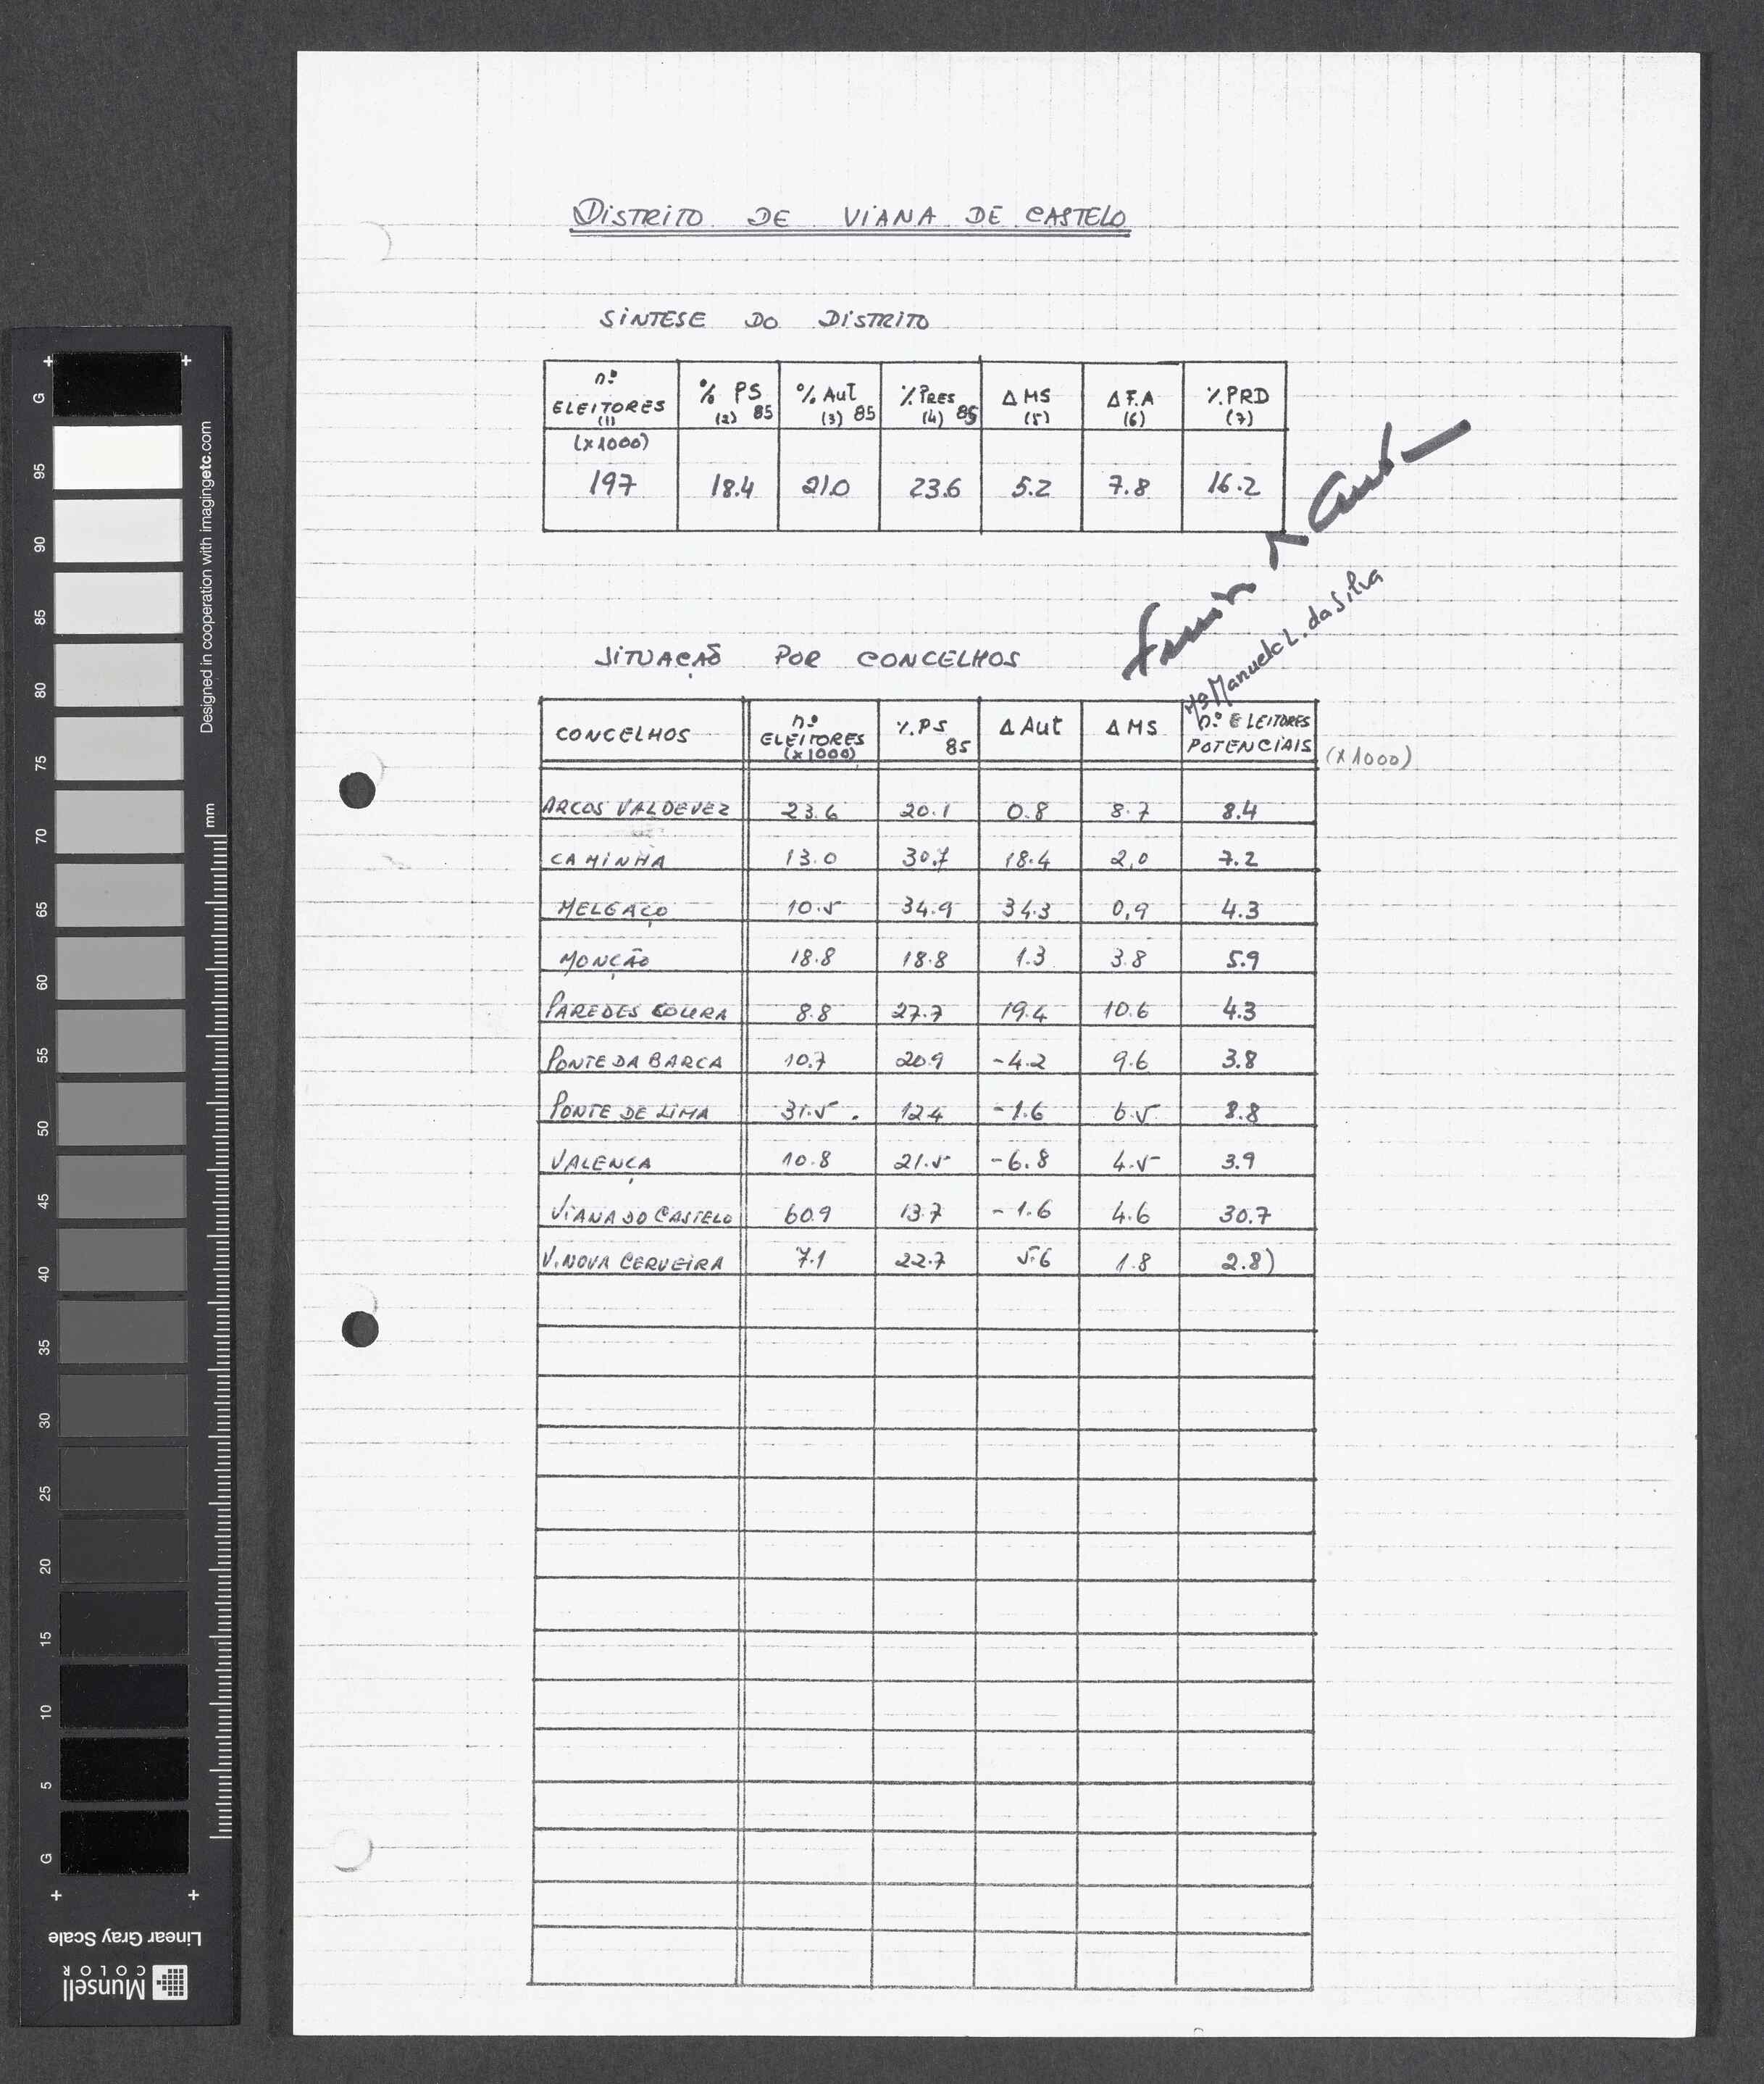 DISTRITO DE VIANA DE CASTELO
SINTESE DO DISTRITO
nº ELEITORES (1) % PS (2) 85 % Aut (3) 85 % PRES (4) 85 Δ MS (5) Δ F.A (6) % PRD (7)
(x1000)
197 18.4 21.0 23.6 5.2 7.8 16.2
Mª Manuela L. da Silva
SITUAÇÃO POR CONCELHOS
CONCELHOS nº ELEITORES (x1000) % PS 85 Δ Aut Δ MS nº ELEITORES POTENCIAIS (x1000)
ARCOS VALDEVEZ 23.6 20.1 0.8 8.7 8.4
CAMINHA 13.0 30.7 18.4 2,0 7.2
MELGAÇO 10.5 34.9 34.3 0,9 4.3
MONÇÃO 18.8 18.8 1.3 3.8 5.9
PAREDES COURA 8.8 27.7 19.4 10.6 4.3
PONTE DA BARCA 10.7 20.9 -4.2 9.6 3.8
PONTE DE LIMA 31.5 . 12.4 -1.6 6.5 8.8
VALENÇA 10.8 21.5 -6.8 4.5 3.9
VIANA DO CASTELO 60.9 13.7 -1.6 4.6 30.7
V. NOVA CERVEIRA 7.1 22.7 5.6 1.8 2.8)
G 95 90 85 80 75 70 65 60 55 50 45 40 35 30 25 20 15 10 5 G
Designed in cooperation with imagingetc.com
mm
Linear Gray Scale
Munsell
COLOR